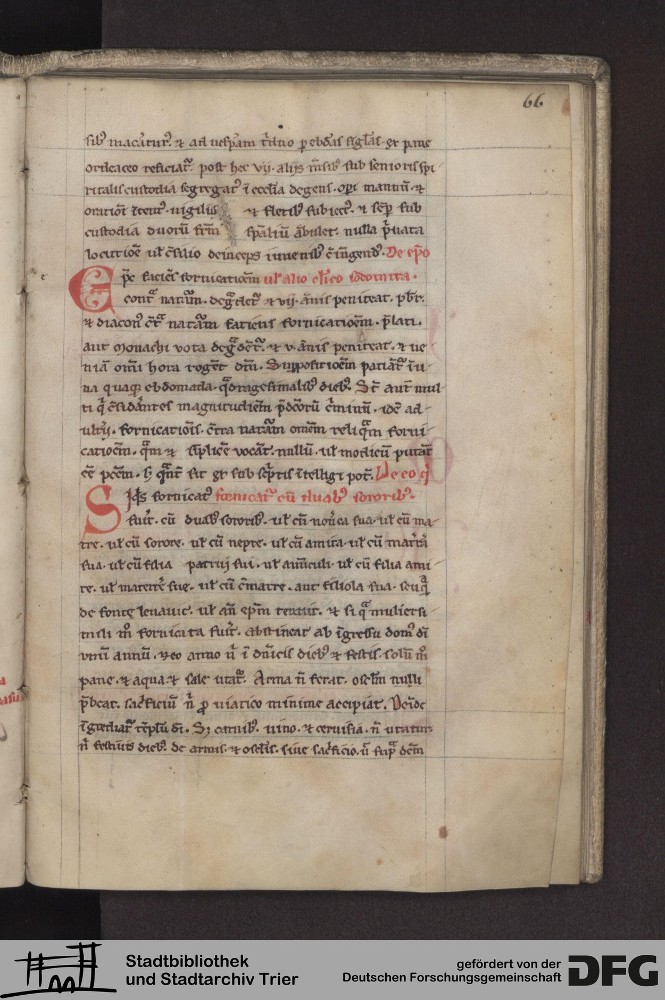 66
sib᷒ maceratur᷒. ⁊ ad uesp̄am t̄duo ꝑ ebdas sigl̄as. ex pane
ordeaceo reficiat᷒. post hec vij. alijs m̄sib᷒ sub senioris spi
ritalis custodia segregat᷒ ī eccl̄ia degens. oꝑi manuū. ⁊
oratiōi ītent᷒. uigiliis ⁊ fletib᷒ subiect᷒. ⁊ sēp sub
custodia duorū frm̄ sp̄aliū ābulet. nulla p̄uata
locutiōe ul̓ c̄silio deinceps iuuenib᷒ c̄iūgend᷒. De ep̄o
Ep̄c faciēs fornicatiōem ul̓ alio cl̄ico sodomita.
contᷓ natᷓm. degᷓdet᷒ ⁊ vij. ānis peniteat. pbr̄.
⁊ diacon᷒ c̄tᷓ natᷓm faciens fornicatiōem. p̄lati.
aut monachi uota degᷓdēt᷒. ⁊ v. ānis peniteat. ⁊ ue
niā om̄i hora roget dm̄. Suppositiōem patiāt᷒ ī u
na quaqꝫ ebdomada. qᷓdragesimalib᷒ dieb᷒. St̄ aut̄ mul
ti q̄ c̄sidᷓntes magnitudiēm p̄dc̄orū c̄minū. idē ad
ulterij. fornicatiōis. c̄tra natᷓm om̄em reliqᷓm forni
catiōem. qᷓm ⁊ simplicē uocāt. nullū. ul̓ modicū putāt
eē pc̄c̄m. ꝫ qᷓnt᷒ sit ex sub sc̄ptis ītelligi pot᷒. De eo q̄
Siqͥs fornicat᷒ fornicat᷒ cū duab᷒ sororib᷒.
fuīt. cū duab᷒ sororib᷒. ul̓ cū nouerca sua. ul̓ cū ma
tre. ul̓ cū sorore. ul̓ cū nepte. ul̓ cū amita. ul̓ cū mat̄tᷓ
sua. ul̓ cū filia patrui sui. ul̓ auūculi. ul̓ cū filia ami
te. ul̓ matertē sue. ul̓ cū c̄matre. aut filiola sua. seu qᷓ
de fonte leuauit. ul̓ añ ep̄m tenuit. ⁊ si qᷓ mulier si
mili mͦ fornicata fuīt. abstineat ab īgressu dom᷒ dī
unū annū. ꝫ eo anno n̄ ī dn̄icis dieb᷒ ⁊ festis. solūmͦ
pane. ⁊ aqua. ⁊ sale utat᷒. Arma n̄ ferat. osculm̄ nulli
p̄beat. sacficiū n̄ ꝓ uiatico minime accipiat. Deīde
īgrediat᷒ tēplū dī. Sꝫ carnib᷒. uino. ⁊ ceruisia. n̄ utatur
n̄ festiuis dieb᷒. de armis. ⁊ osculis. siue sacficio. ū supᷓ dc̄m
Stadtbibliothek
und Stadtarchiv Trier
gefördert von der
Deutschen Forschungsgemeinschaft
DFG